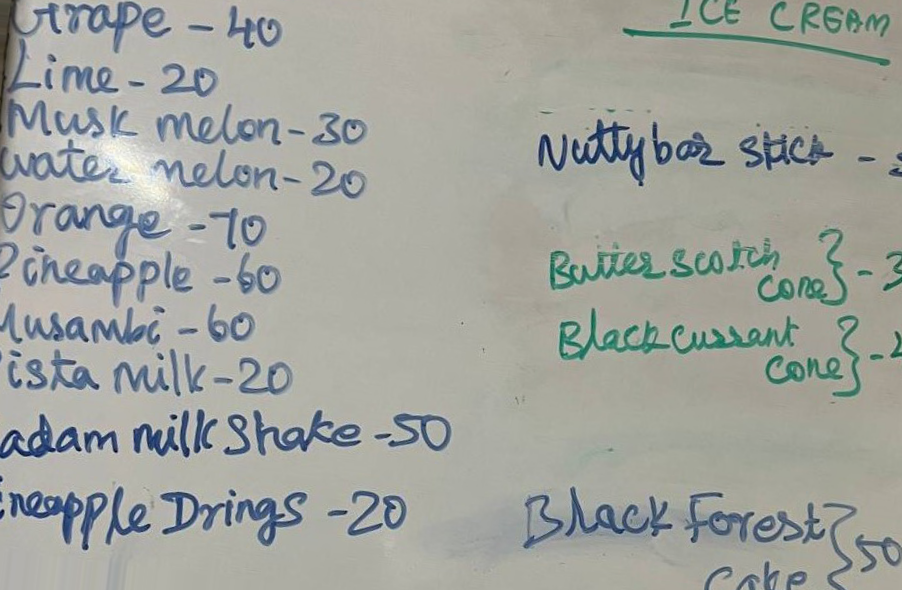 Grape - 40
Lime - 20
Musk melon - 30
water melon - 20
Orange - 70
Pineapple - 60
Musambi - 60
ista milk - 20
adam milk Shake - 50
ineapple Drings - 20
ICE CREAM
Nuttybar stick -
Butter scotch
cone } - 3
Black cussant
cone } -
Black Forest
Cake } 50